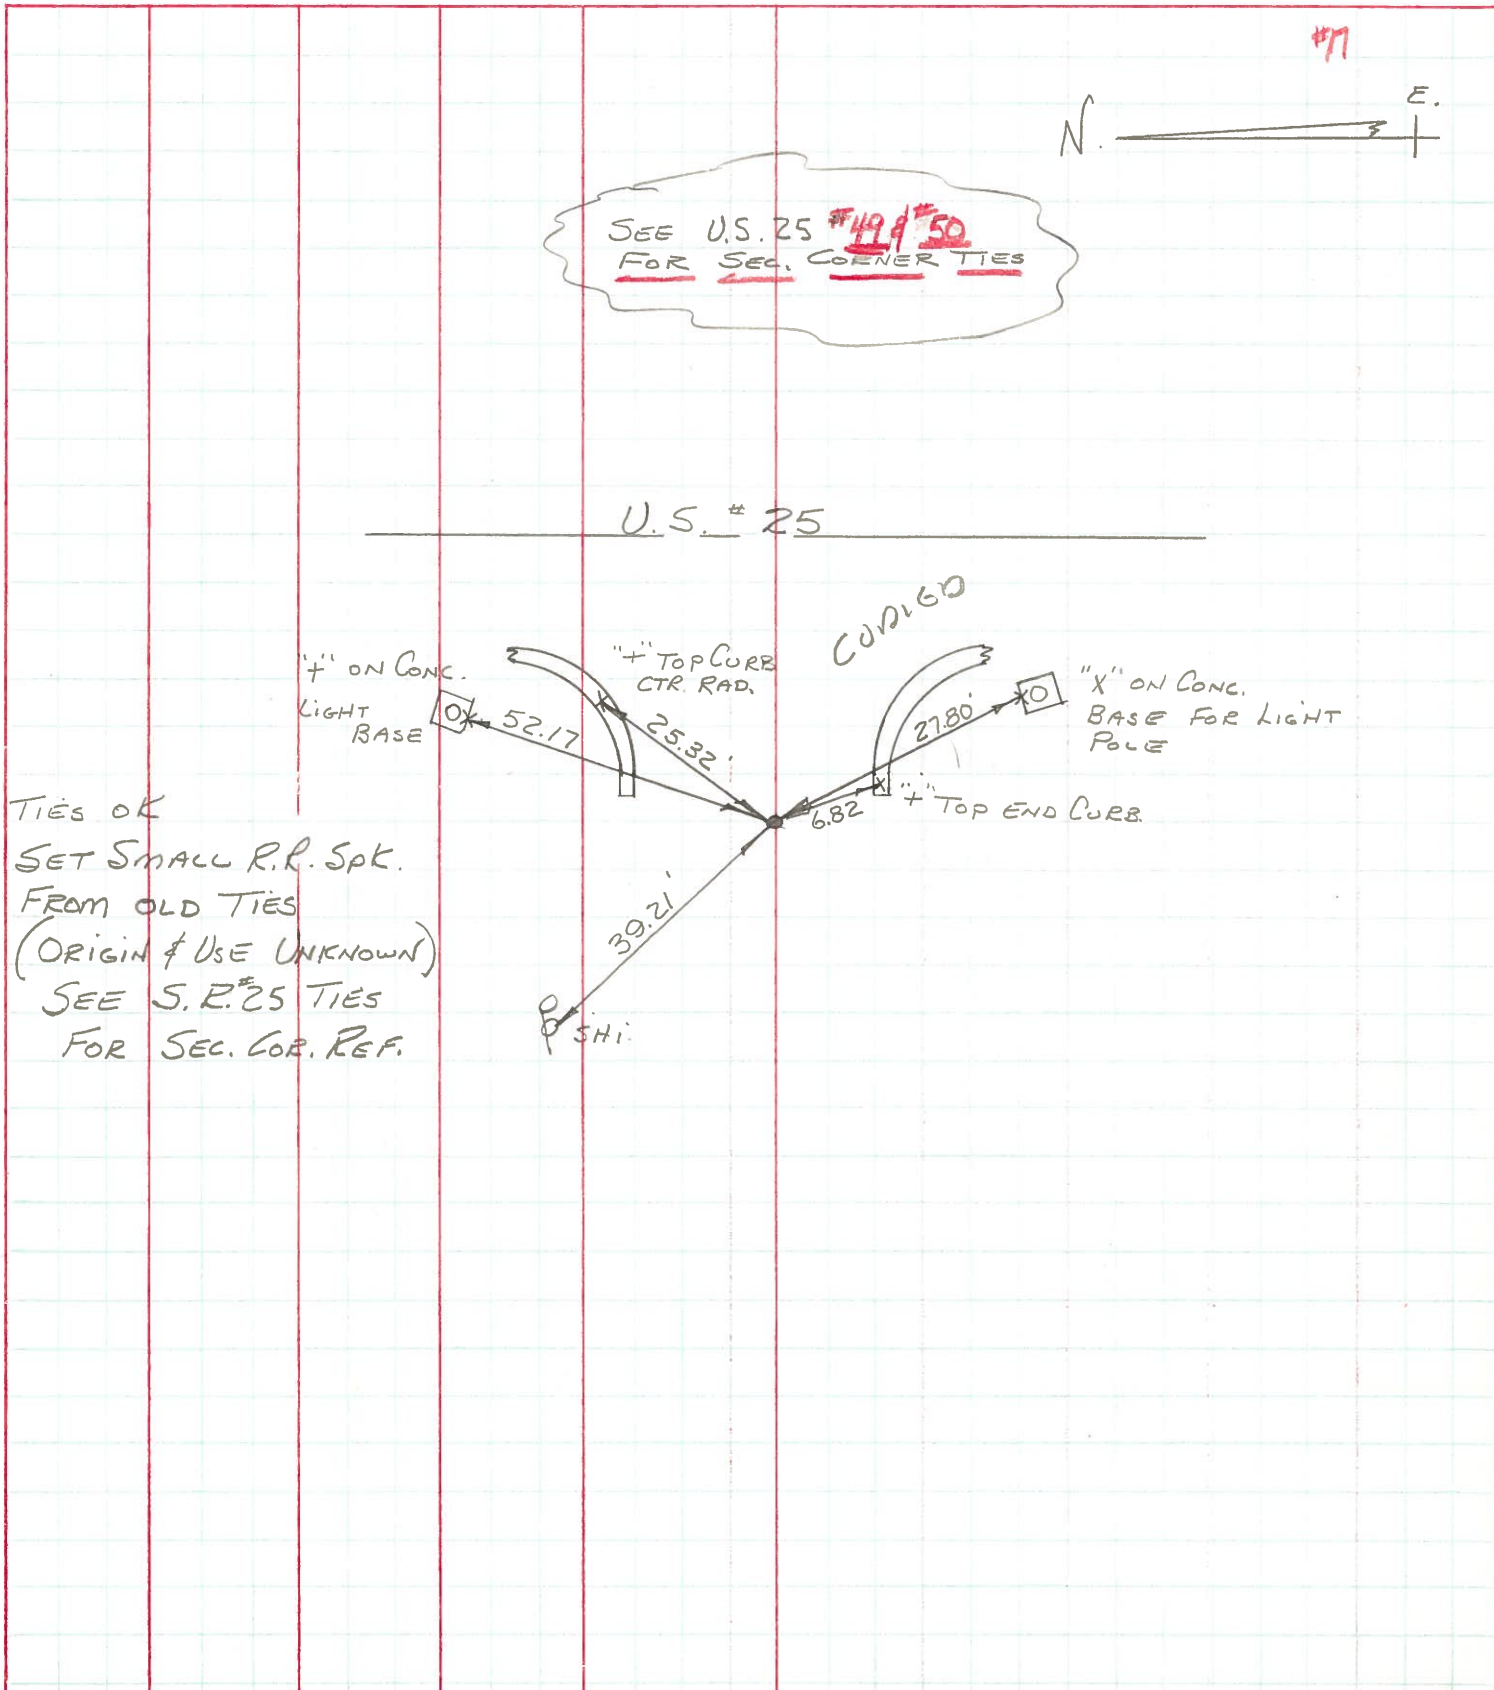 #77
N.
E.
SEE U.S. 25 #49 & #50
FOR SEC. CORNER TIES
U.S. # 25
"+" ON CONC.
LIGHT
BASE
"+" TOP CURB
CTR. RAD.
"X" ON CONC.
BASE FOR LIGHT
POLE
52.17
25.32'
27.80'
6.82
"+" TOP END CURB.
39.21'
TIES OK
SET SMALL R.R. SPK.
FROM OLD TIES
(ORIGIN & USE UNKNOWN)
SEE S.R. #25 TIES
FOR SEC. COR. REF.